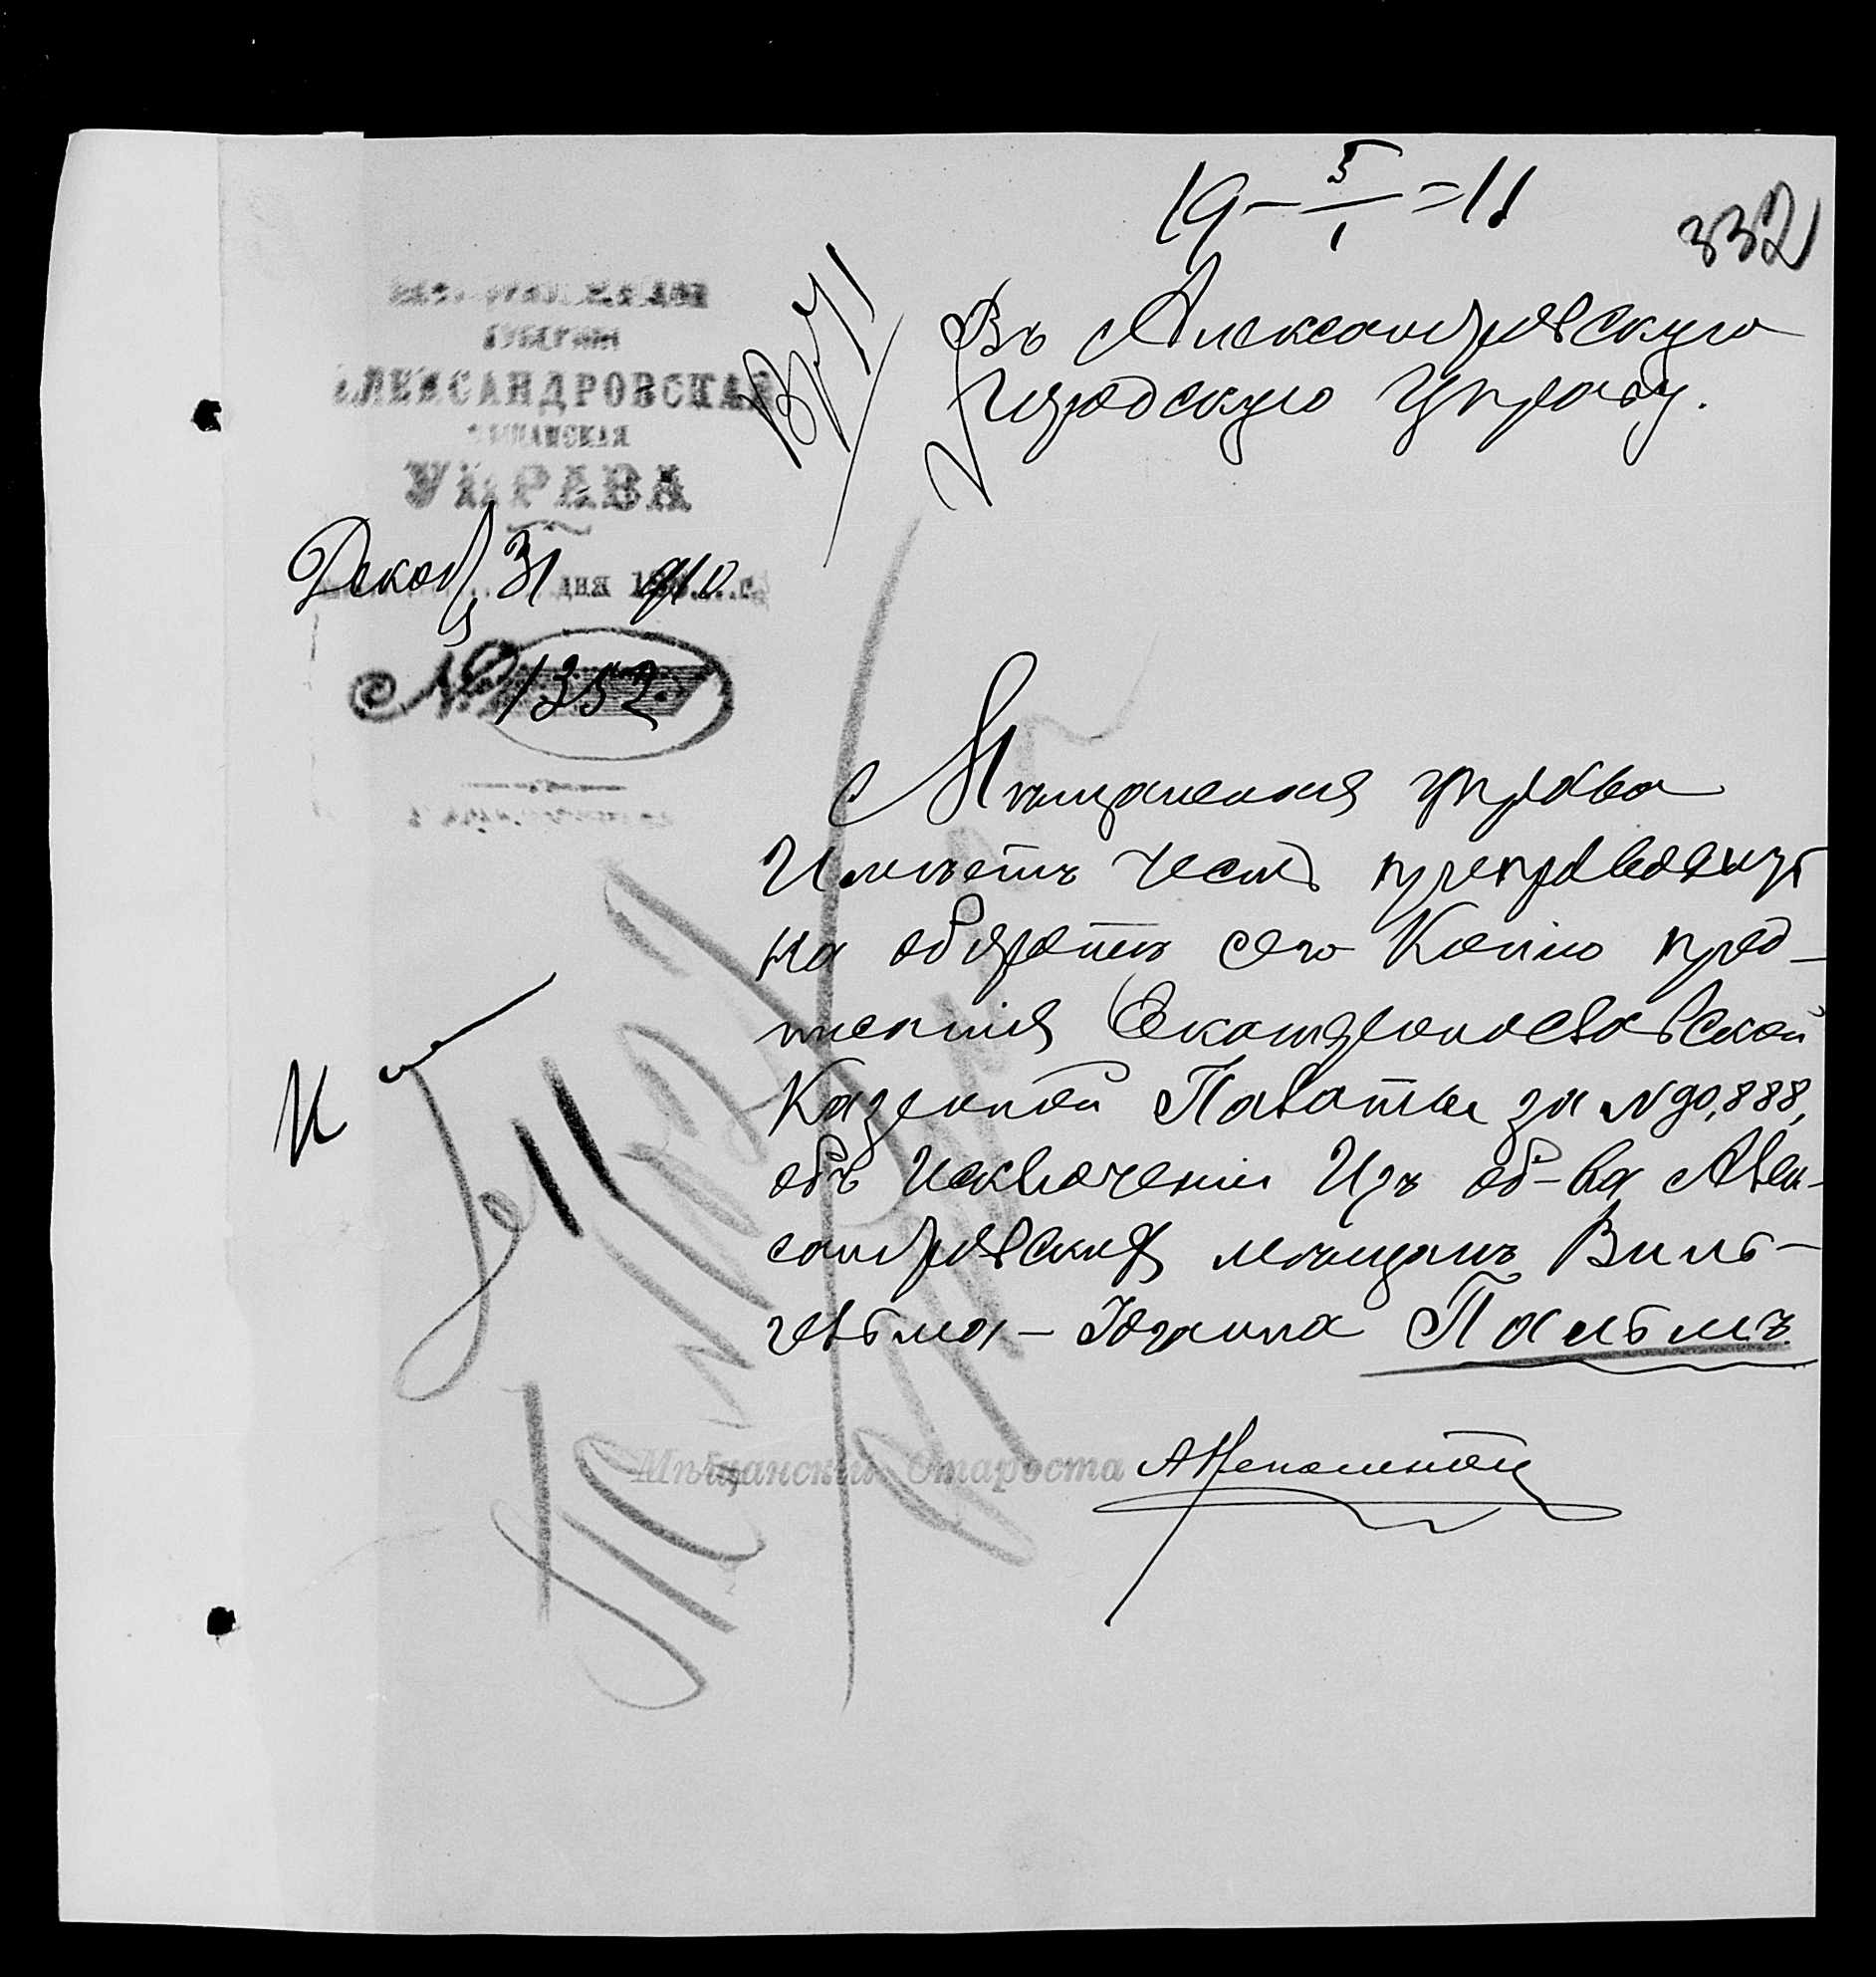 19-5/1=11
332
ГУБЕРНІИ
АЛЕКСАНДРОВСКАЯ
МѢЩАНСКАЯ
УПРАВА
Декаб. 31 дня 1910 г.
№ 1352.
Въ Александровскую
Городскую Управу.
Мѣщанская управа
Имѣетъ честь препроводить
на оборотѣ сего Копію пред-
писанія Екатеринославской
Казенной Палаты за № 90,888,
объ Исключеніи Изъ об-ва Алек-
сандровскихъ мѣщанъ Виль-
гельма-Іоганна Пальмъ
Мѣщанскій Староста